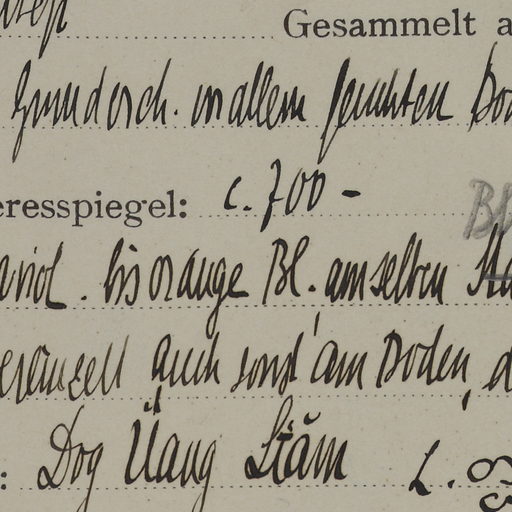 Gesammelt a
Grundorch. in allem feuchten Bo
eresspiegel: c. 700 -
bis orange Bl. am selben
auch sonst am Boden, d
: Dog Üang Stăm L.